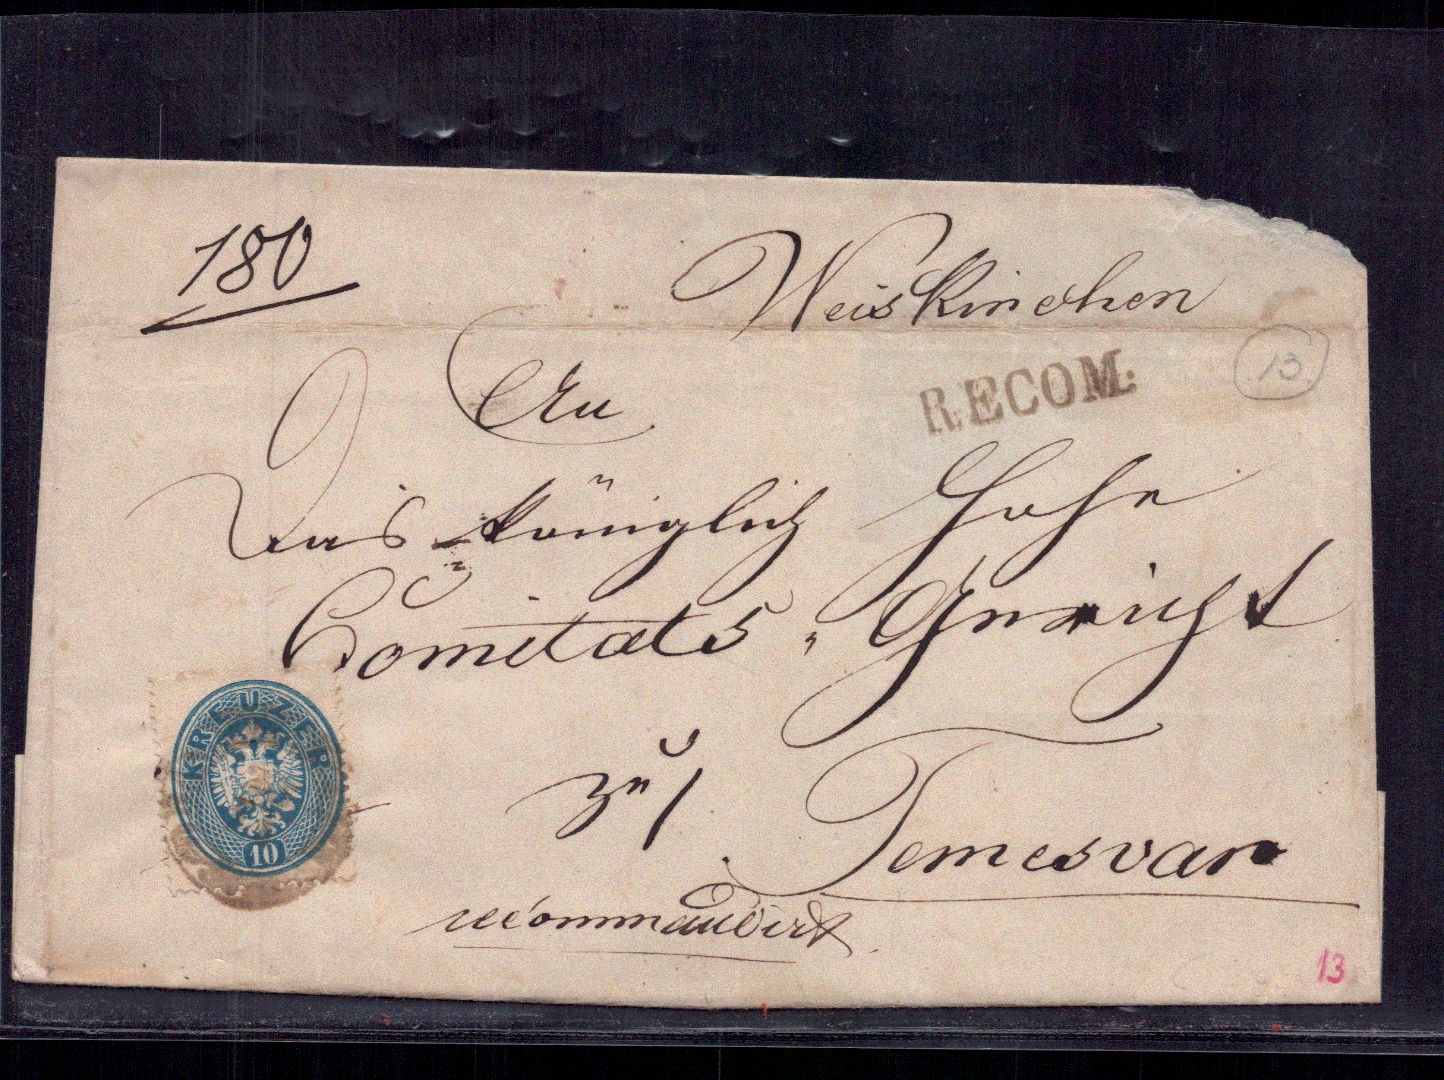 180
Weiskirchen
RECOM:
13
An
Das königlich hohe
Comitats-Gericht
zu
Temesvar
recommandirt
KREUZER
10
13